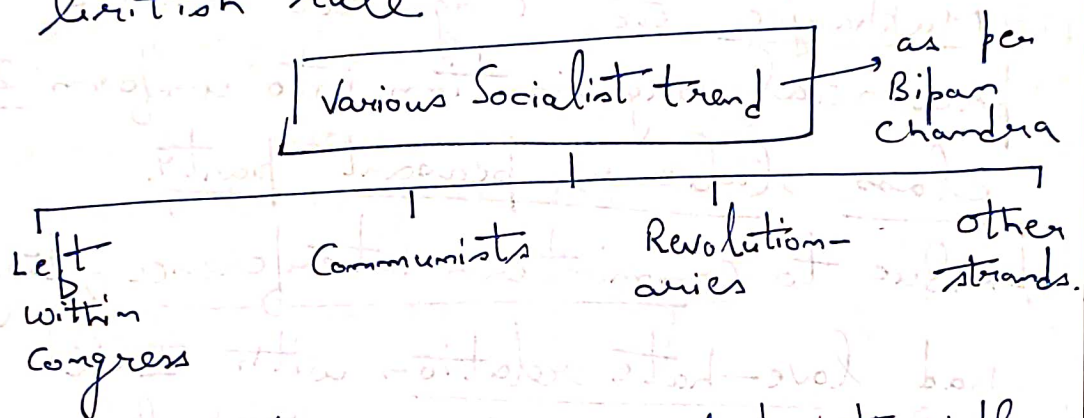 British rule
Various Socialist trend
as per
Bipan
Chandra
Left
within
Congress
Communists
Revolution-
aries
other
strands.